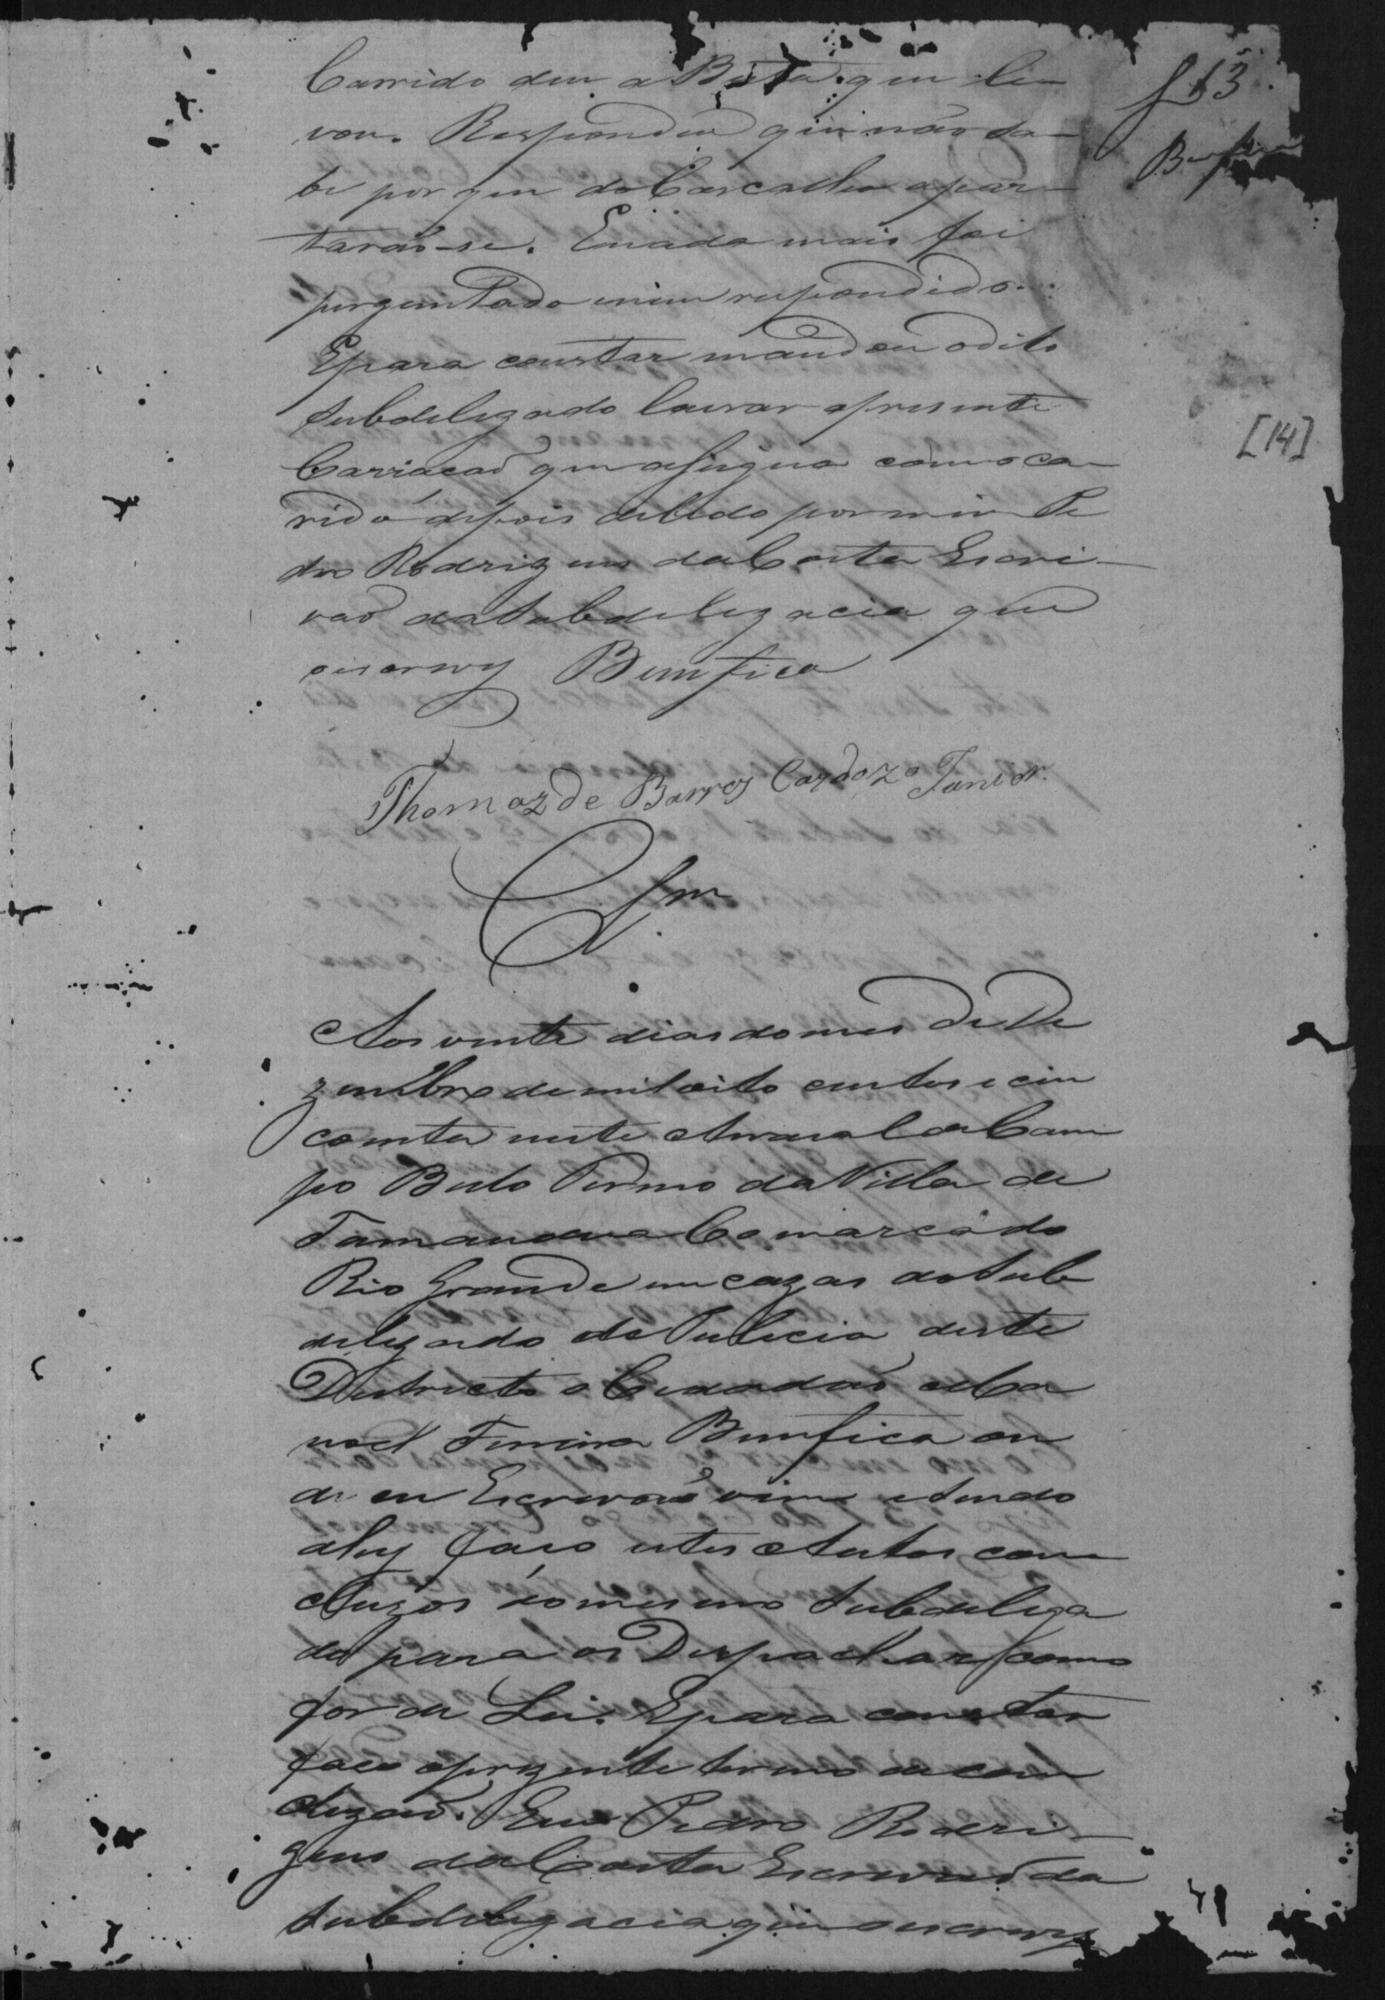 f 13
Bemfica
Carrido deu a Besta que le
vou. Respondeu que não sa
be por que do Cascalho apar
tarão-se. Enada mais foi
perguntado enem respondido.
Epara constar mandou odito
Subdelegado lavrar apresente
Cariacaõ que assigna com oca
rido depois delido por mim Pe
dro Rodrigues da Costa Escri-
vaõ da Subdelegacia que
oescrevy Bemfica
[14]
Thomaz de Barros Cardozo Junior.
Clsm
Aos vinte dias do mes de De
zembro demil oito centos e cin
coenta neste Arraial do Cam
po Bello Termo da Villa de
Tamandua Comarca do
Rio Grande em cazas do Sub
delegado de Pulicia deste
Districto o Cidadaõ Ma
noel Ferreira Bemfica on
de eu Escrivaõ vim e sendo
ahy faco estes Autos con
cluzos ao mesmo Subdelega
do para os Despachar como
for de Lei. Epara constar
faco oprezente termo de con
cluzaõ. Eu Pedro Rodri-
gues da Costa Escrivaõ da
Subdelegacia que oescrevy